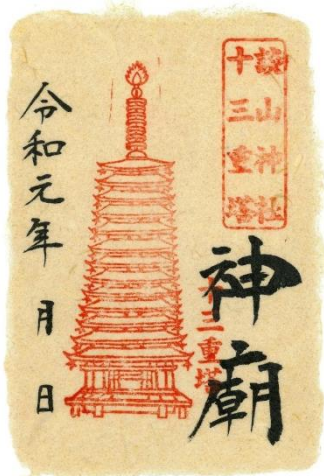 談山神社
十三重塔
神廟
十三重塔
令和元年 月 日